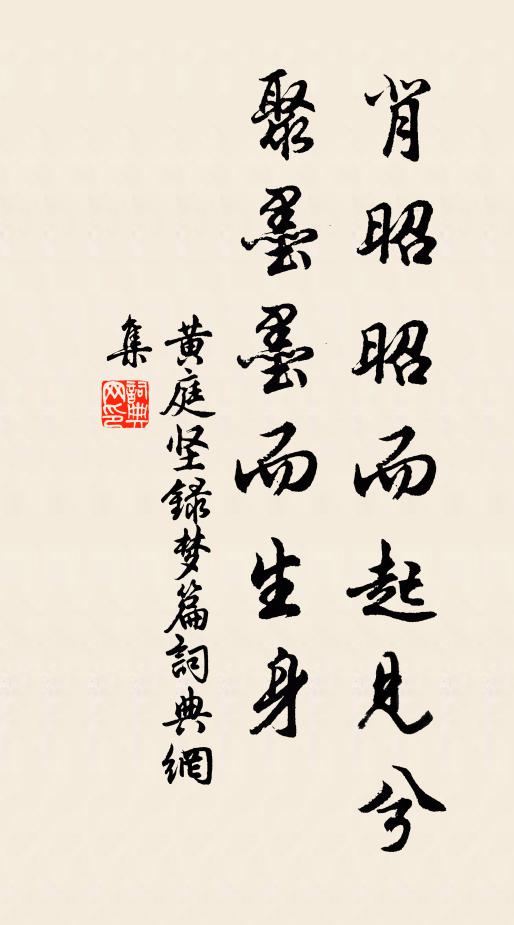 肖昭昭而起見兮
聚墨墨而生身
黄庭坚録梦篇詞典網
集
詞典網印